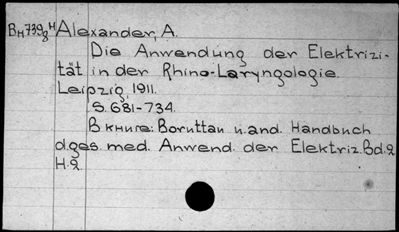 Вн739/8 н Alexander, A.
Die Anwendung der Elektrizi-
tät in der Rhino-Laryngologie.
Leipzig, 1911.
S. 681-734.
В книге: Boruttau u. and. Handbuch
d.ges. med. Anwend. der Elektriz. Bd. 2
H. 2.